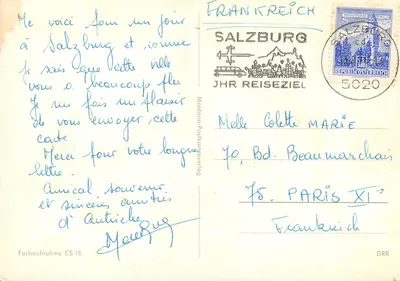 Me voici pour un jour
à Salzburg et comme
je sais que cette ville
vous a beaucoup plu
Je me fais un plaisir
de vous envoyer cette
carte
Merci pour votre longue
lettre.
Amical souvenir
et sincères amitiés
d'Autriche
Farbaufnahme CS 16
FRANKREICH
SALZBURG
IHR REISEZIEL
SALZBURG
5020
REPUBLIK ÖSTERREICH
Melle Colette MARIE
70, Bd. Beaumarchais
75. PARIS XI
Frankreich
DRR